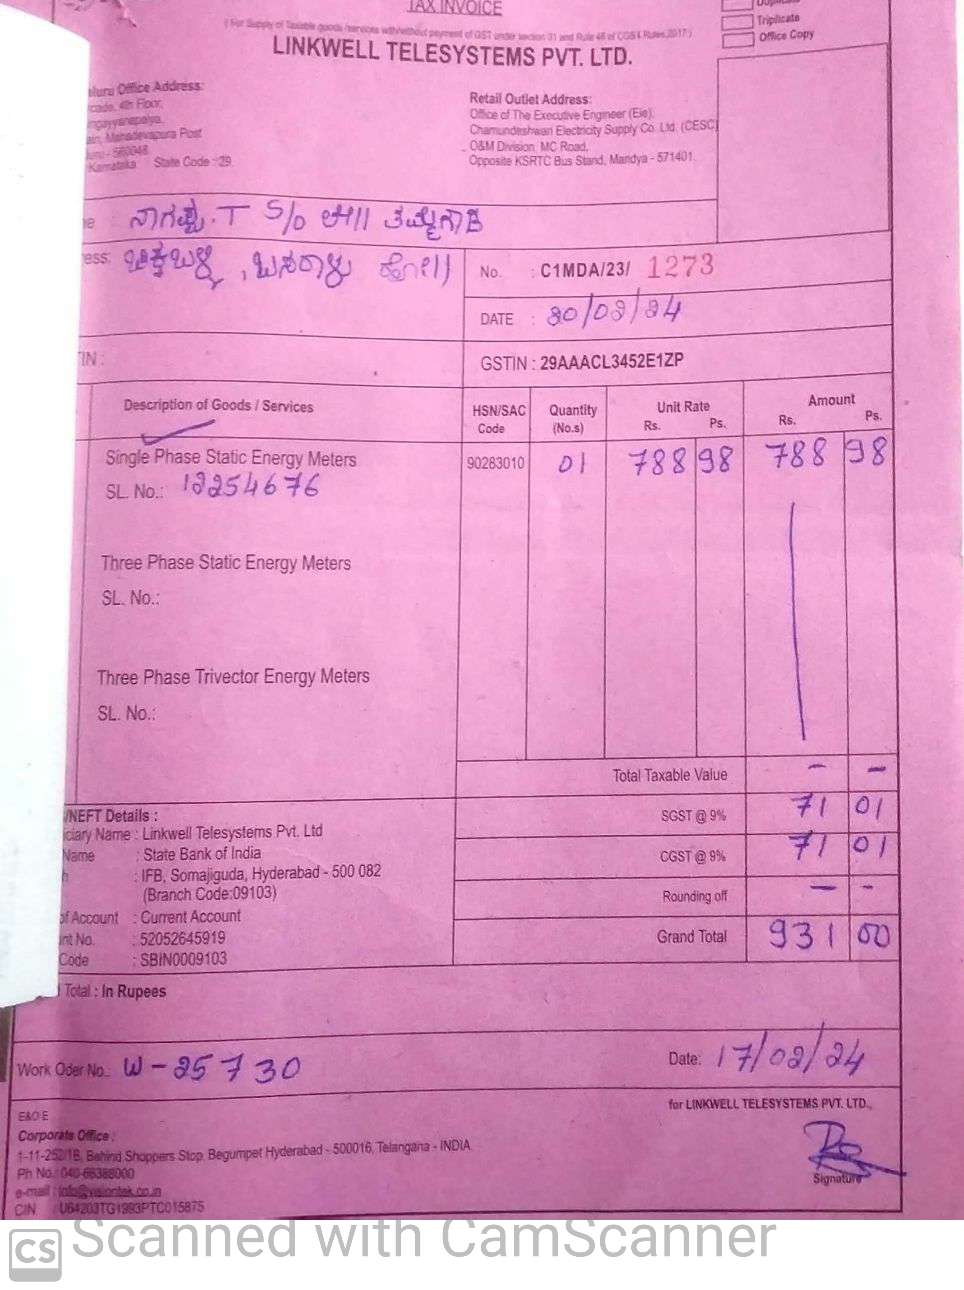 TAX INVOICE
( For Supply of Taxable goods /services with/without payment of GST under section 31 and Rule 46 of CGST Rules,2017)
LINKWELL TELESYSTEMS PVT. LTD.
Triplicate
Office Copy
Office Address:
4th Floor,
Mahadevapura Post
Karnataka State Code : 29.
Retail Outlet Address:
Office of The Executive Engineer (Ele),
Chamundeshwari Electricity Supply Co. Ltd. (CESC)
O&M Division, MC Road,
Opposite KSRTC Bus Stand, Mandya - 571401.
T S/o
No. : C1MDA/23/ 1273
DATE : 20/02/24
GSTIN : 29AAACL3452E1ZP
Description of Goods / Services
HSN/SAC Code
Quantity (No.s)
Unit Rate Rs. Ps.
Amount Rs. Ps.
Single Phase Static Energy Meters 90283010 01 788 98 788 98
SL. No.: 12254676
Three Phase Static Energy Meters
SL. No.:
Three Phase Trivector Energy Meters
SL. No.:
Total Taxable Value - -
SGST @ 9% 71 01
CGST @ 9% 71 01
Rounding off - -
Grand Total 931 00
/NEFT Details :
Name : Linkwell Telesystems Pvt. Ltd
Name : State Bank of India
: IFB, Somajiguda, Hyderabad - 500 082
(Branch Code:09103)
of Account : Current Account
No. : 52052645919
Code : SBIN0009103
Total : In Rupees
Work Oder No.: W-25730
Date: 17/02/24
for LINKWELL TELESYSTEMS PVT. LTD.,
Signature
E&O E
Corporate Office :
1-11-252/1B, Behind Shoppers Stop, Begumpet Hyderabad - 500016, Telangana - INDIA
Ph No.: 040-66388000
e-mail : info@visiontek.co.in
CIN : U64203TG1993PTC015875
CS Scanned with CamScanner